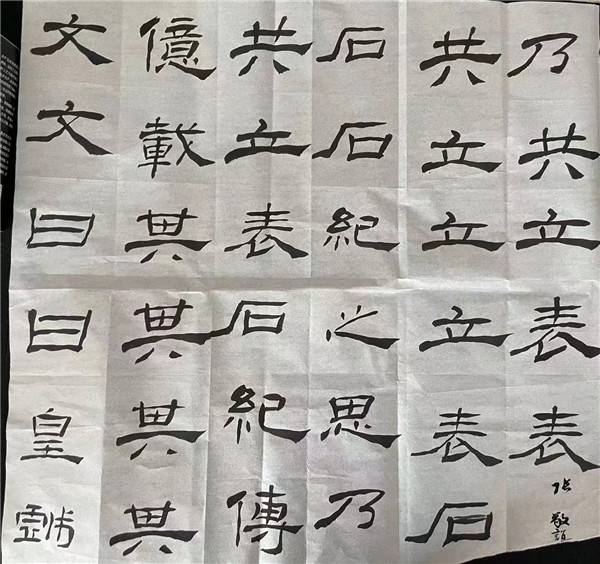 乃共立表表
张敬
共立立立表石
石石紀之思乃
共立表石紀傳
億載其其其其
文文曰曰皇戲